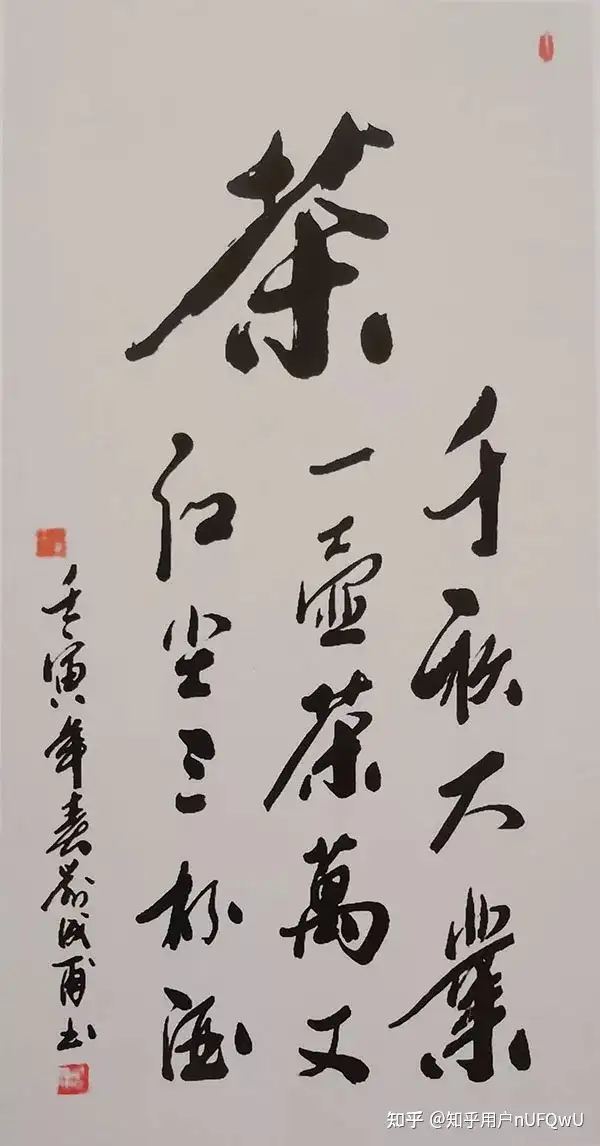 茶
千秋大業
一壺茶萬丈
红尘三杯酒
壬寅年春成甫书
知乎 @知乎用户nUFQwU